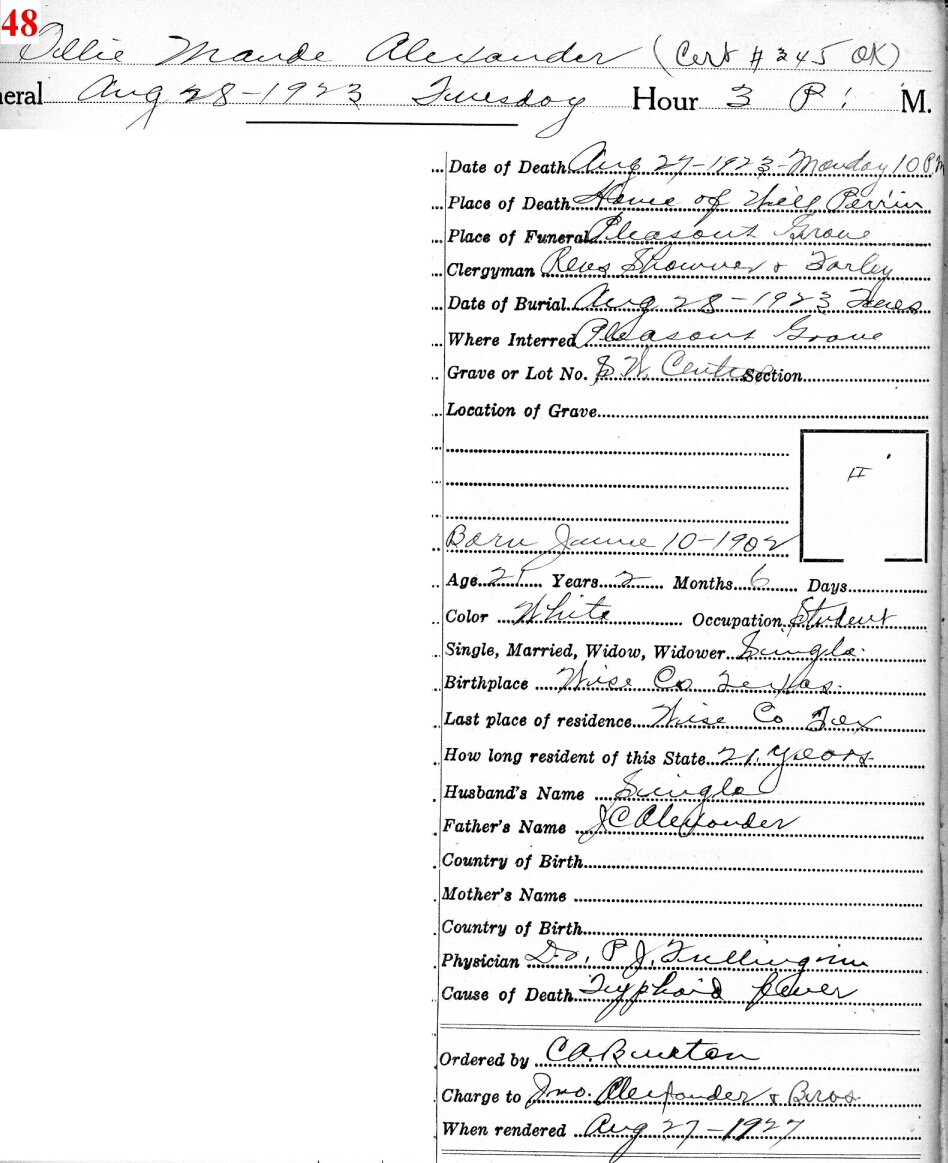 48
Ollie Maude Alexander (Cert # 245 OK)
neral Aug 28-1923 Tuesday Hour 3 P. M.
Date of Death Aug 27-1923-Monday 10 PM
Place of Death Home of Will Perrin
Place of Funeral Pleasant Grove
Clergyman Revs Showver & Farley
Date of Burial Aug 28-1923 Tues
Where Interred Pleasant Grove
Grave or Lot No. S W. Center Section
Location of Grave
Born June 10-1902
Age 21 Years 2 Months 6 Days
Color White Occupation Student
Single, Married, Widow, Widower Single
Birthplace Wise Co Texas.
Last place of residence Wise Co Tex
How long resident of this State 21 Years
Husband's Name Single
Father's Name J C Alexander
Country of Birth
Mother's Name
Country of Birth
Physician Dr. P. J. Fullingim
Cause of Death Typhoid fever
Ordered by C A. Buxton
Charge to Jno. Alexander & Bros
When rendered Aug 27-1927